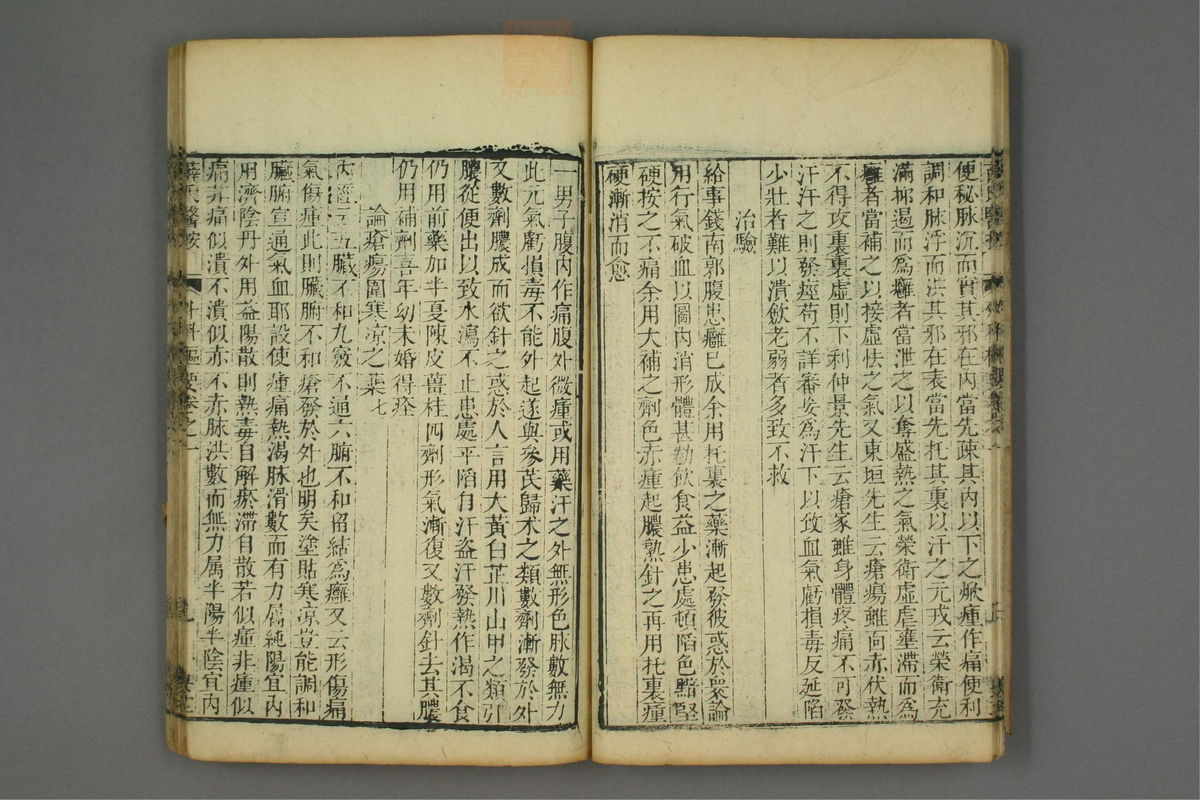 便秘脉沉而實其邪在內當先疎其內以下之焮瘇作痛便利
調和脉浮而洪其邪在表當先托其裏以汗之元戎云榮衛充
滿抑遏而為癰者當泄之以奪盛熱之氣榮衛虛虐壅滯而為
癰者當補之以接虛怯之氣又東垣先生云瘡瘍雖面赤伏熱
不得攻裏裏虛則下利仲景先生云瘡家雖身體疼痛不可發
汗汗之則發痙苟不詳審妄為汗下以致血氣虧損毒反延陷
少壯者難以潰歛老弱者多致不救
治驗
給事錢南郭腹患癰已成余用托裏之藥漸起發彼惑於衆論
用行氣破血以圖內消形體甚勌飲食益少患處頓陷色黯堅
硬按之不痛余用大補之劑色赤瘇起膿熟針之再用托裏瘇
硬漸消而愈
一男子腹內作痛腹外微瘇或用藥汗之外無形色脉數無力
此元氣虧損毒不能外起遂與參芪歸术之類數劑漸發於外
又數劑膿成而欲針之惑於人言用大黃白芷川山甲之類引
膿從便出以致水瀉不止患處平陷自汗盗汗發熱作渴不食
仍用前藥加半夏陳皮薑桂四劑形氣漸復又數劑針去其膿
仍用補劑喜年幼未婚得痊
論瘡瘍圍寒凉之藥七
內經云五臟不和九竅不通六腑不和留結為癰又云形傷痛
氣傷瘇此則臟腑不和瘡發於外也明矣塗貼寒凉豈能調和
臟腑宣通氣血耶設使瘇痛熱渴脉滑數而有力属純陽宜內
用濟陰丹外用益陽散則熱毒自解瘀滯自散若似瘇非瘇似
痛非痛似潰不潰似赤不赤脉洪數而無力属半陽半陰宜內
薛氏醫按 外科樞要卷之一